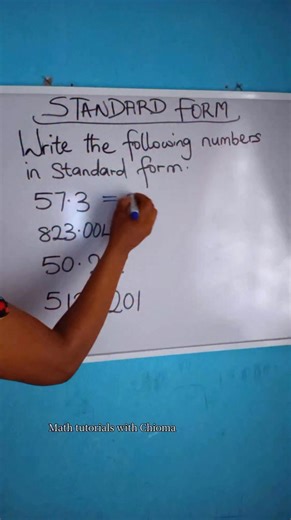 STANDARD FORM
Write the following numbers
in Standard form.
57.3 =
823.004
50.
51 201
Math tutorials with Chioma